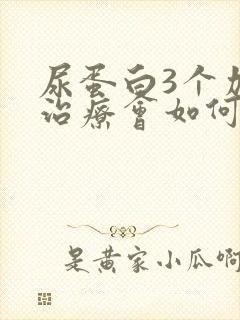 尿蛋白3个加
治療會如何
是黄家小瓜啊